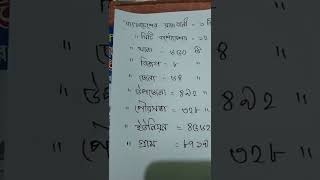 বাংলাদেশের রাজধানী - ১
" সিটি কর্পোরেশন - ১২
" থানা - ৬৫০ টি
" বিভাগ - ৮ "
" জেলা - ৬৪ "
" উপজেলা = ৪৯২ "
" পৌরসভা = ৩২৮ "
" ইউনিয়ন = ৪৫৬২
" গ্রাম = ৮৭১৯
" ৪৯২
" ৩২৮